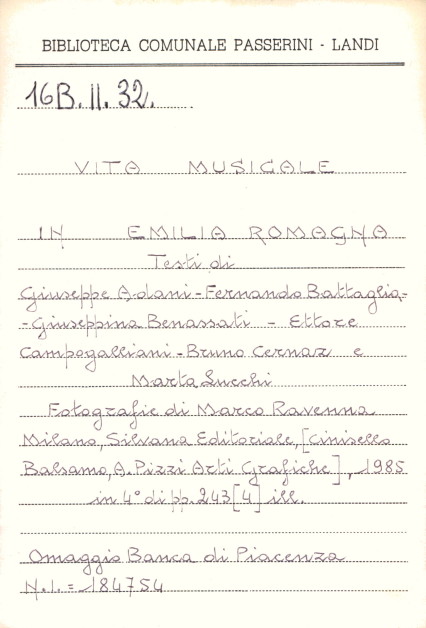 BIBLIOTECA COMUNALE PASSERINI - LANDI
16B. II. 32.
VITA MUSICALE
IN EMILIA ROMAGNA
Testi di
Giuseppe Adani - Fernando Battaglia -
- Giuseppina Benassati - Ettore
Campogalliani - Bruno Cernaz e
Marta Lucchi
Fotografie di Marco Ravenna
Milano, Silvana Editoriale, [Cinisello
Balsamo, A. Pizzi Arti Grafiche], 1985
in 4° di pp. 243 [4] ill.
Omaggio Banca di Piacenza
N.I. = 184754